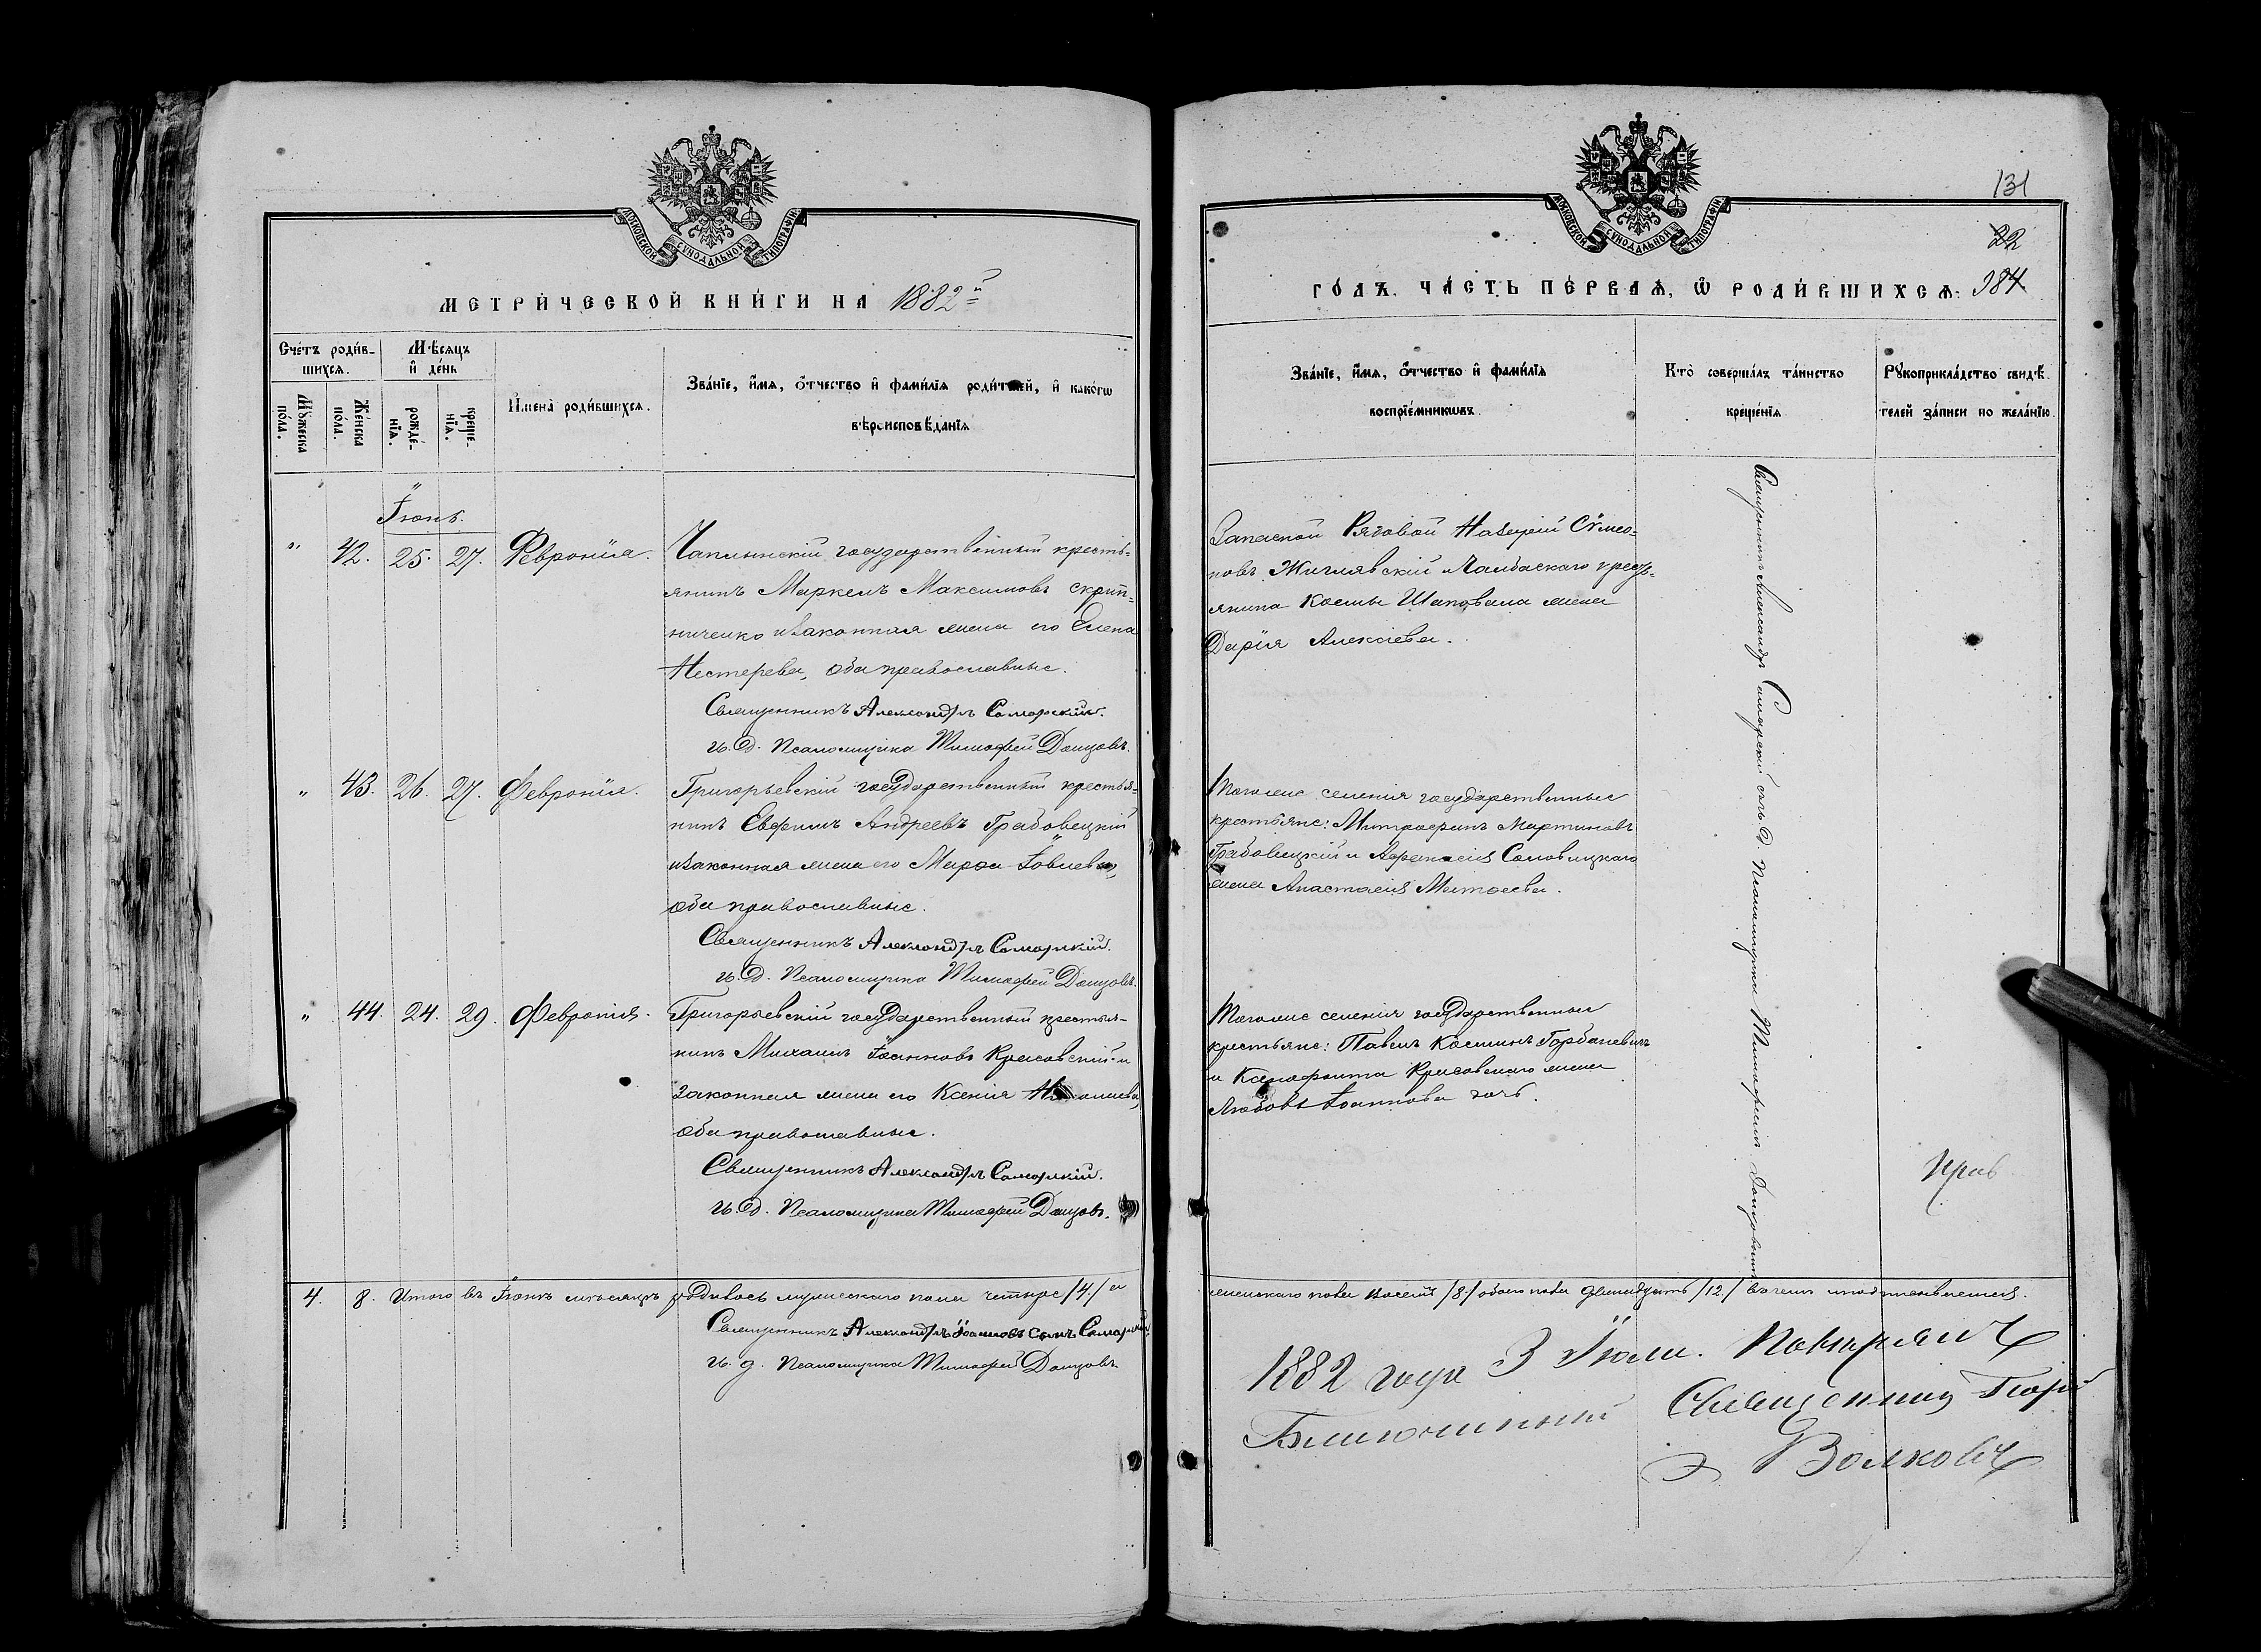 МОСКОВСКОЙ СУНОДАЛЬНОЙ ТИПОГРАФІИ
МЕТРИ́ЧЕСКОЙ КНИ́ГИ НА 1882й
Сче́тъ роди́в-
шихсѧ.
Мѣ́сѧцъ
и҆ де́нь
Мꙋ́жеска
по́ла.
Же́нска
по́ла.
рожде́-
нїѧ.
креще́-
нїѧ.
И҆мена̀ роди́вшихсѧ.
Зва́нїе, и҆́мѧ, ѻ҆́тчество и҆ фами́лїѧ роди́телей, и҆ како́гѡ
вѣроисповѣ́данїѧ
Іюнь.
" 42. 25. 27. Февронія.
Чаплынскій государственный кресть=
янинъ Маркелъ Максимовъ Скрип=
ниченко и законная жена его Елена
Нестерева, оба православные.
Священникъ Александръ Самарскій.
и. д. Псаломщика Тимофей Донцовъ.
" 43. 26. 27. Февронія.
Григорьевскій государственный крестья=
нинъ Евфимъ Андреевъ Грабовецкій
и законная жена его Марфа Іовлева,
оба православные.
Священникъ Александръ Самарскій.
и. д. Псаломщика Тимофей Донцовъ.
" 44. 24. 29. Февронія.
Григорьевскій государственный крестья-
нинъ Михаилъ Іоанновъ Красовскій и
законная жена его Ксенія
оба православные.
Священникъ Александръ Самарскій.
и. д. Псаломщика Тимофей Донцовъ.
4. 8. Итого въ Іюнѣ мѣсяцѣ родилось мужескаго пола четыре /4/ и
Священникъ Александръ Іоанновъ сынъ Самарскій
и. д. Псаломщика Тимофей Донцовъ
МОСКОВСКОЙ СУНОДАЛЬНОЙ ТИПОГРАФІИ
131
22
384
ГО́ДЪ. ЧА́СТЬ ПЕ́РВАѦ, Ѿ РОДИ́ВШИХСѦ.
Зва́нїе, и҆́мѧ, ѻ҆́тчество и҆ фами́лїѧ
воспрїе́мникѡвъ.
Кто̀ соверша́лъ та́инство
креще́нїѧ
Рꙋкоприкла́дство свидѣ́-
телей за́писи по жела́нїю.
Запасной Рядовой Сѵмео=
новъ и Чалбаскаго кресть=
янина Космы Шаповала жена
Дарія Алексіева.
Тогоже селенія государственные
крестьяне: Митрофанъ Мартиновъ
Грабовецкій и
жена Анастасія
Тогоже селенія государственные
крестьяне: Павелъ Косминъ
и Ксенофонта Красовскаго жена
Любовь Іоаннова
Священникъ Александръ Самарскій съ и. д. Псаломщика Тимофеемъ Донцовымъ
женскаго пола восемь /8/ обоего пола двенадцать /12/ въ чемъ и подписываемся.
1882 года 3 Іюля.
Благочинный Священникъ
Волковъ